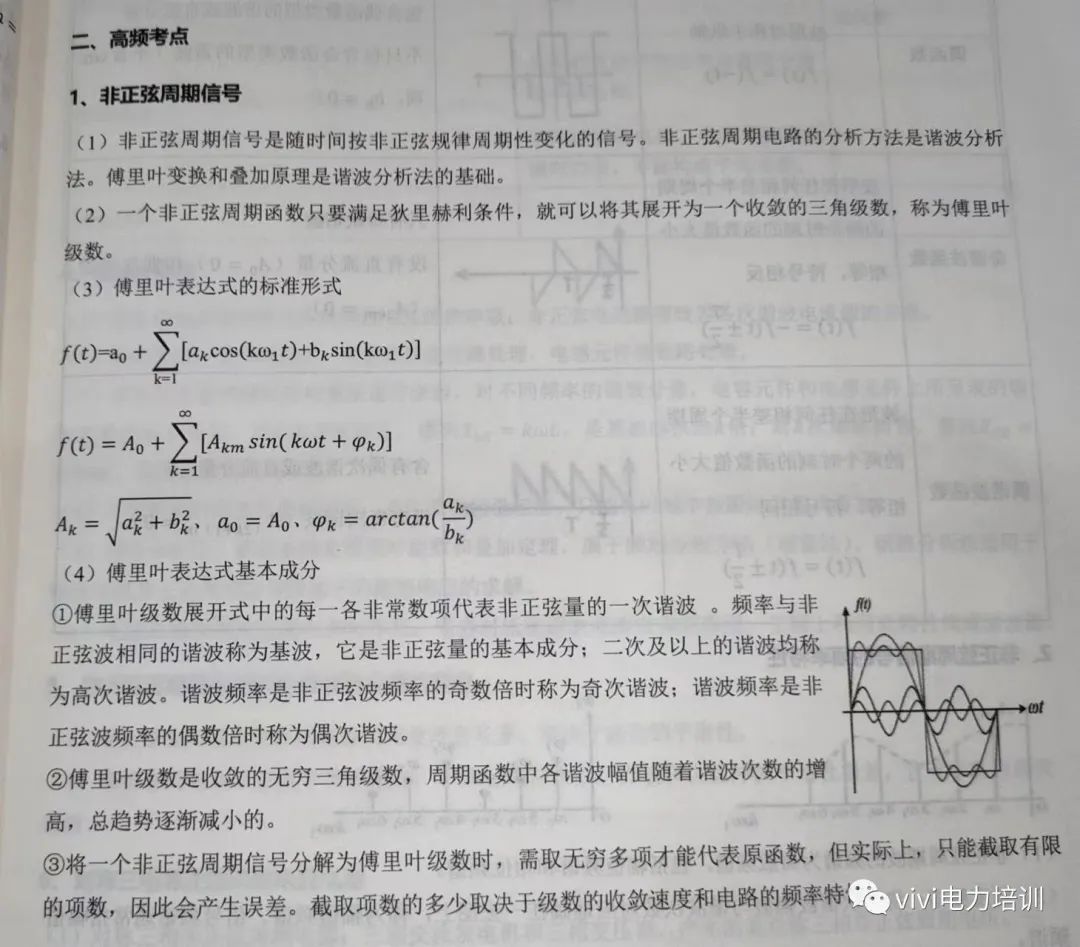 二、高频考点
1、非正弦周期信号
（1）非正弦周期信号是随时间按非正弦规律周期性变化的信号。非正弦周期电路的分析方法是谐波分析
法。傅里叶变换和叠加原理是谐波分析法的基础。
（2）一个非正弦周期函数只要满足狄里赫利条件，就可以将其展开为一个收敛的三角级数，称为傅里叶
级数。
（3）傅里叶表达式的标准形式
∞
f(t)=a₀ + ∑ [aₖcos(kω₁t)+bₖsin(kω₁t)]
k=1
∞
f(t) = A₀ + ∑ [Aₖₘ sin( kωt + φₖ)]
k=1
Aₖ = √(aₖ² + bₖ²)，a₀ = A₀、φₖ = arctan(aₖ/bₖ)
（4）傅里叶表达式基本成分
①傅里叶级数展开式中的每一各非常数项代表非正弦量的一次谐波 。频率与非
正弦波相同的谐波称为基波，它是非正弦量的基本成分；二次及以上的谐波均称
为高次谐波。谐波频率是非正弦波频率的奇数倍时称为奇次谐波；谐波频率是非
正弦波频率的偶数倍时称为偶次谐波。
f(t)
ωt
②傅里叶级数是收敛的无穷三角级数，周期函数中各谐波幅值随着谐波次数的增
高，总趋势逐渐减小的。
③将一个非正弦周期信号分解为傅里叶级数时，需取无穷多项才能代表原函数，但实际上，只能截取有限
的项数，因此会产生误差。截取项数的多少取决于级数的收敛速度和电路的频率特
vivi电力培训